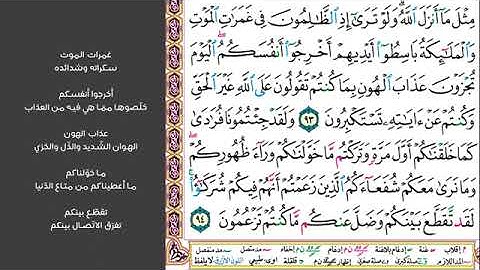 مِثْلَ مَآ أَنزَلَ ٱللَّهُ ۗ وَلَوْ تَرَىٰٓ إِذِ ٱلظَّٰلِمُونَ فِى غَمَرَٰتِ ٱلْمَوْتِ
وَٱلْمَلَٰٓئِكَةُ بَاسِطُوٓا۟ أَيْدِيهِمْ أَخْرِجُوٓا۟ أَنفُسَكُمُ ۖ ٱلْيَوْمَ
تُجْزَوْنَ عَذَابَ ٱلْهُونِ بِمَا كُنتُمْ تَقُولُونَ عَلَى ٱللَّهِ غَيْرَ ٱلْحَقِّ
وَكُنتُمْ عَنْ ءَايَٰتِهِۦ تَسْتَكْبِرُونَ ٩٣ وَلَقَدْ جِئْتُمُونَا فُرَٰدَىٰ
كَمَا خَلَقْنَٰكُمْ أَوَّلَ مَرَّةٍ وَتَرَكْتُم مَّا خَوَّلْنَٰكُمْ وَرَآءَ ظُهُورِكُمْ ۖ
وَمَا نَرَىٰ مَعَكُمْ شُفَعَآءَكُمُ ٱلَّذِينَ زَعَمْتُمْ أَنَّهُمْ فِيكُمْ شُرَكَٰٓؤُا۟ ۚ
لَقَد تَّقَطَّعَ بَيْنَكُمْ وَضَلَّ عَنكُم مَّا كُنتُمْ تَزْعُمُونَ ٩٤
غمرات الموت
سكراته وشدائده
أخرجوا أنفسكم
خلّصوها ممّا هي فيه من العذاب
عذاب الهون
الهوان الشّديد والذّل والخزي
ما خوّلناكم
ما أعطيناكم من متاع الدّنيا
تقطّع بينكم
تفرّق الاتّصال بينكم